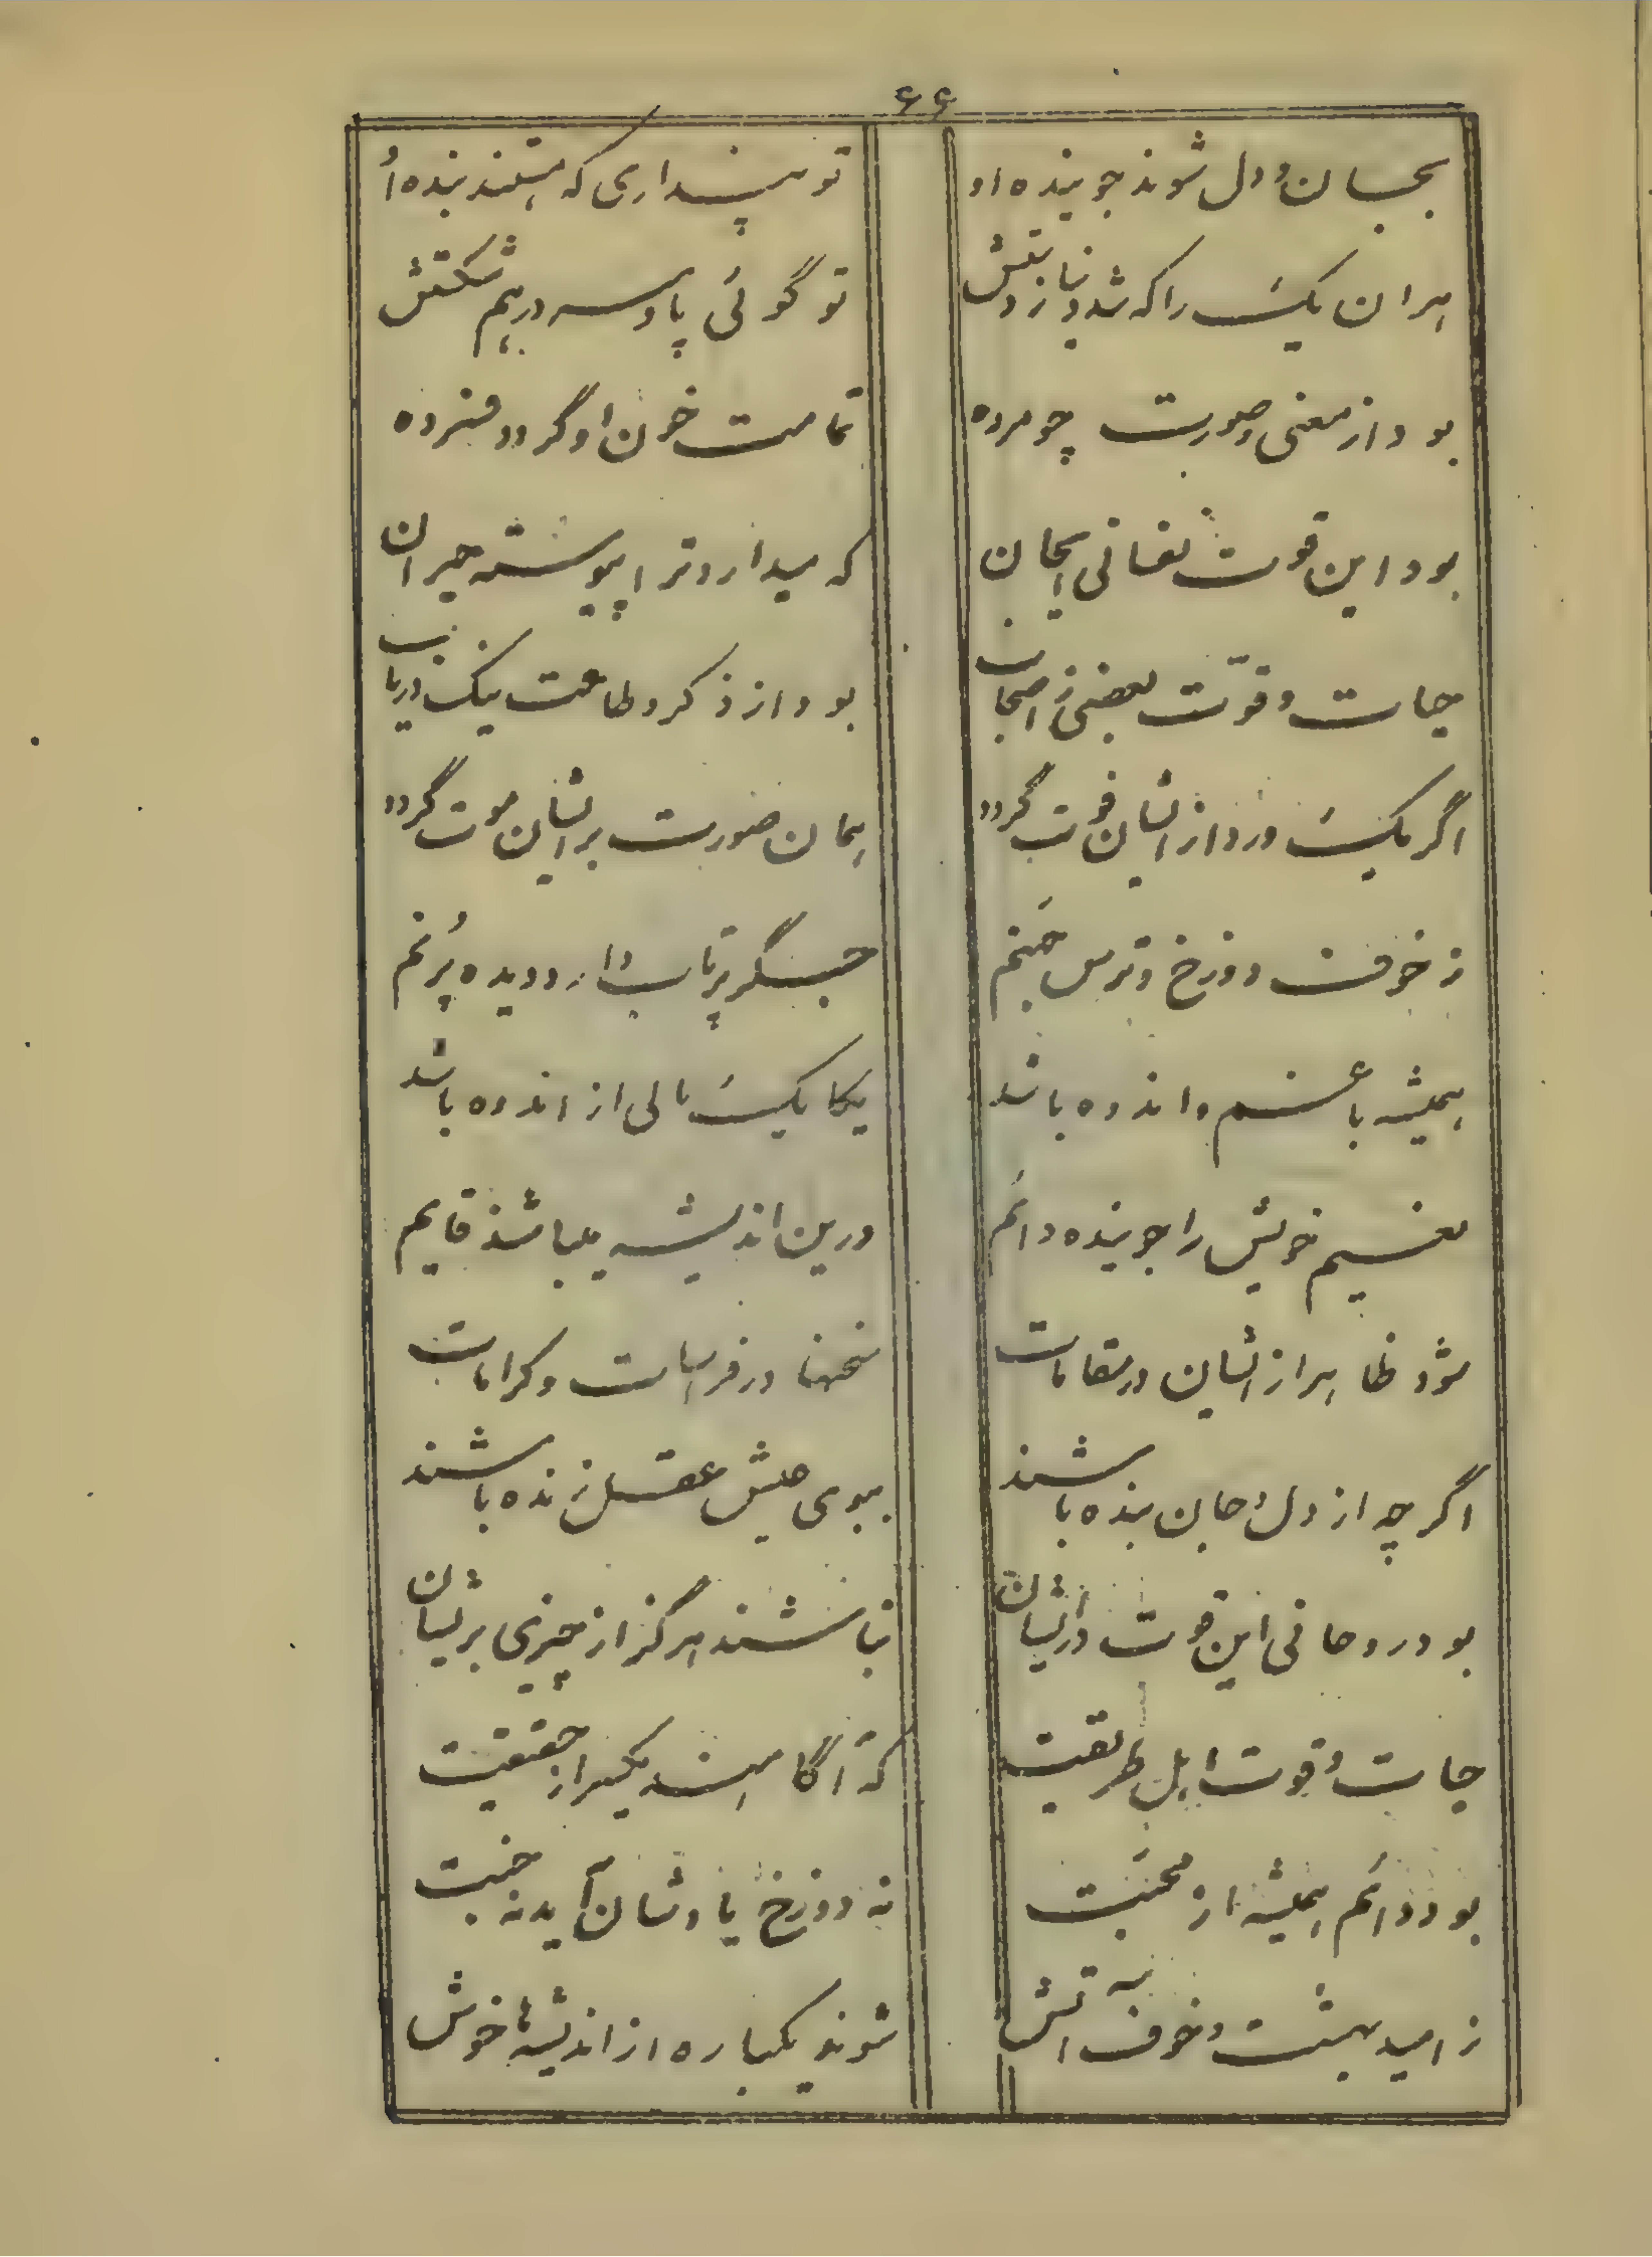 ۶۶
بجان و دل شوند جوینده او
تو پنداری که هستند بنده او
هران یک را که شد دنیا ز دستش
تو گوئی پا و سر درهم شکستش
بود از معنی و صورت چو مرده
تمامت خون او گردد فسرده
بود این قوت نفسانی ایجان
که میدارد ترا پیوسته حیران
حیات و قوت بعضی ز اصحاب
بود از ذکر و طاعت نیک دریاب
اگر یک ورد از ایشان فوت گردد
همان صورت بر ایشان موت گردد
ز خوف دوزخ و ترس جهنم
جگر پرتاب دارد دیده پرنم
همیشه با غم و اندوه باشد
یکایک نالی از اندوه باشد
نعیم خویش را جوینده دائم
درین اندیشه میباشد قایم
شود ظاهر از ایشان در مقامات
سخنها در فراسات و کرامات
اگر چه از دل و جان بنده باشند
ببوی عیش عقل زنده باشند
بود روحانی این قوت در ایشان
نباشند هرگز از چیزی پریشان
حیات و قوت اهل طریقت
که آگاهند یکسر از حقیقت
بود دائم همیشه از محبت
نه دوزخ یادشان آید نه جنت
ز امید بهشت و خوف آتش
شوند یکباره از اندیشها خوش